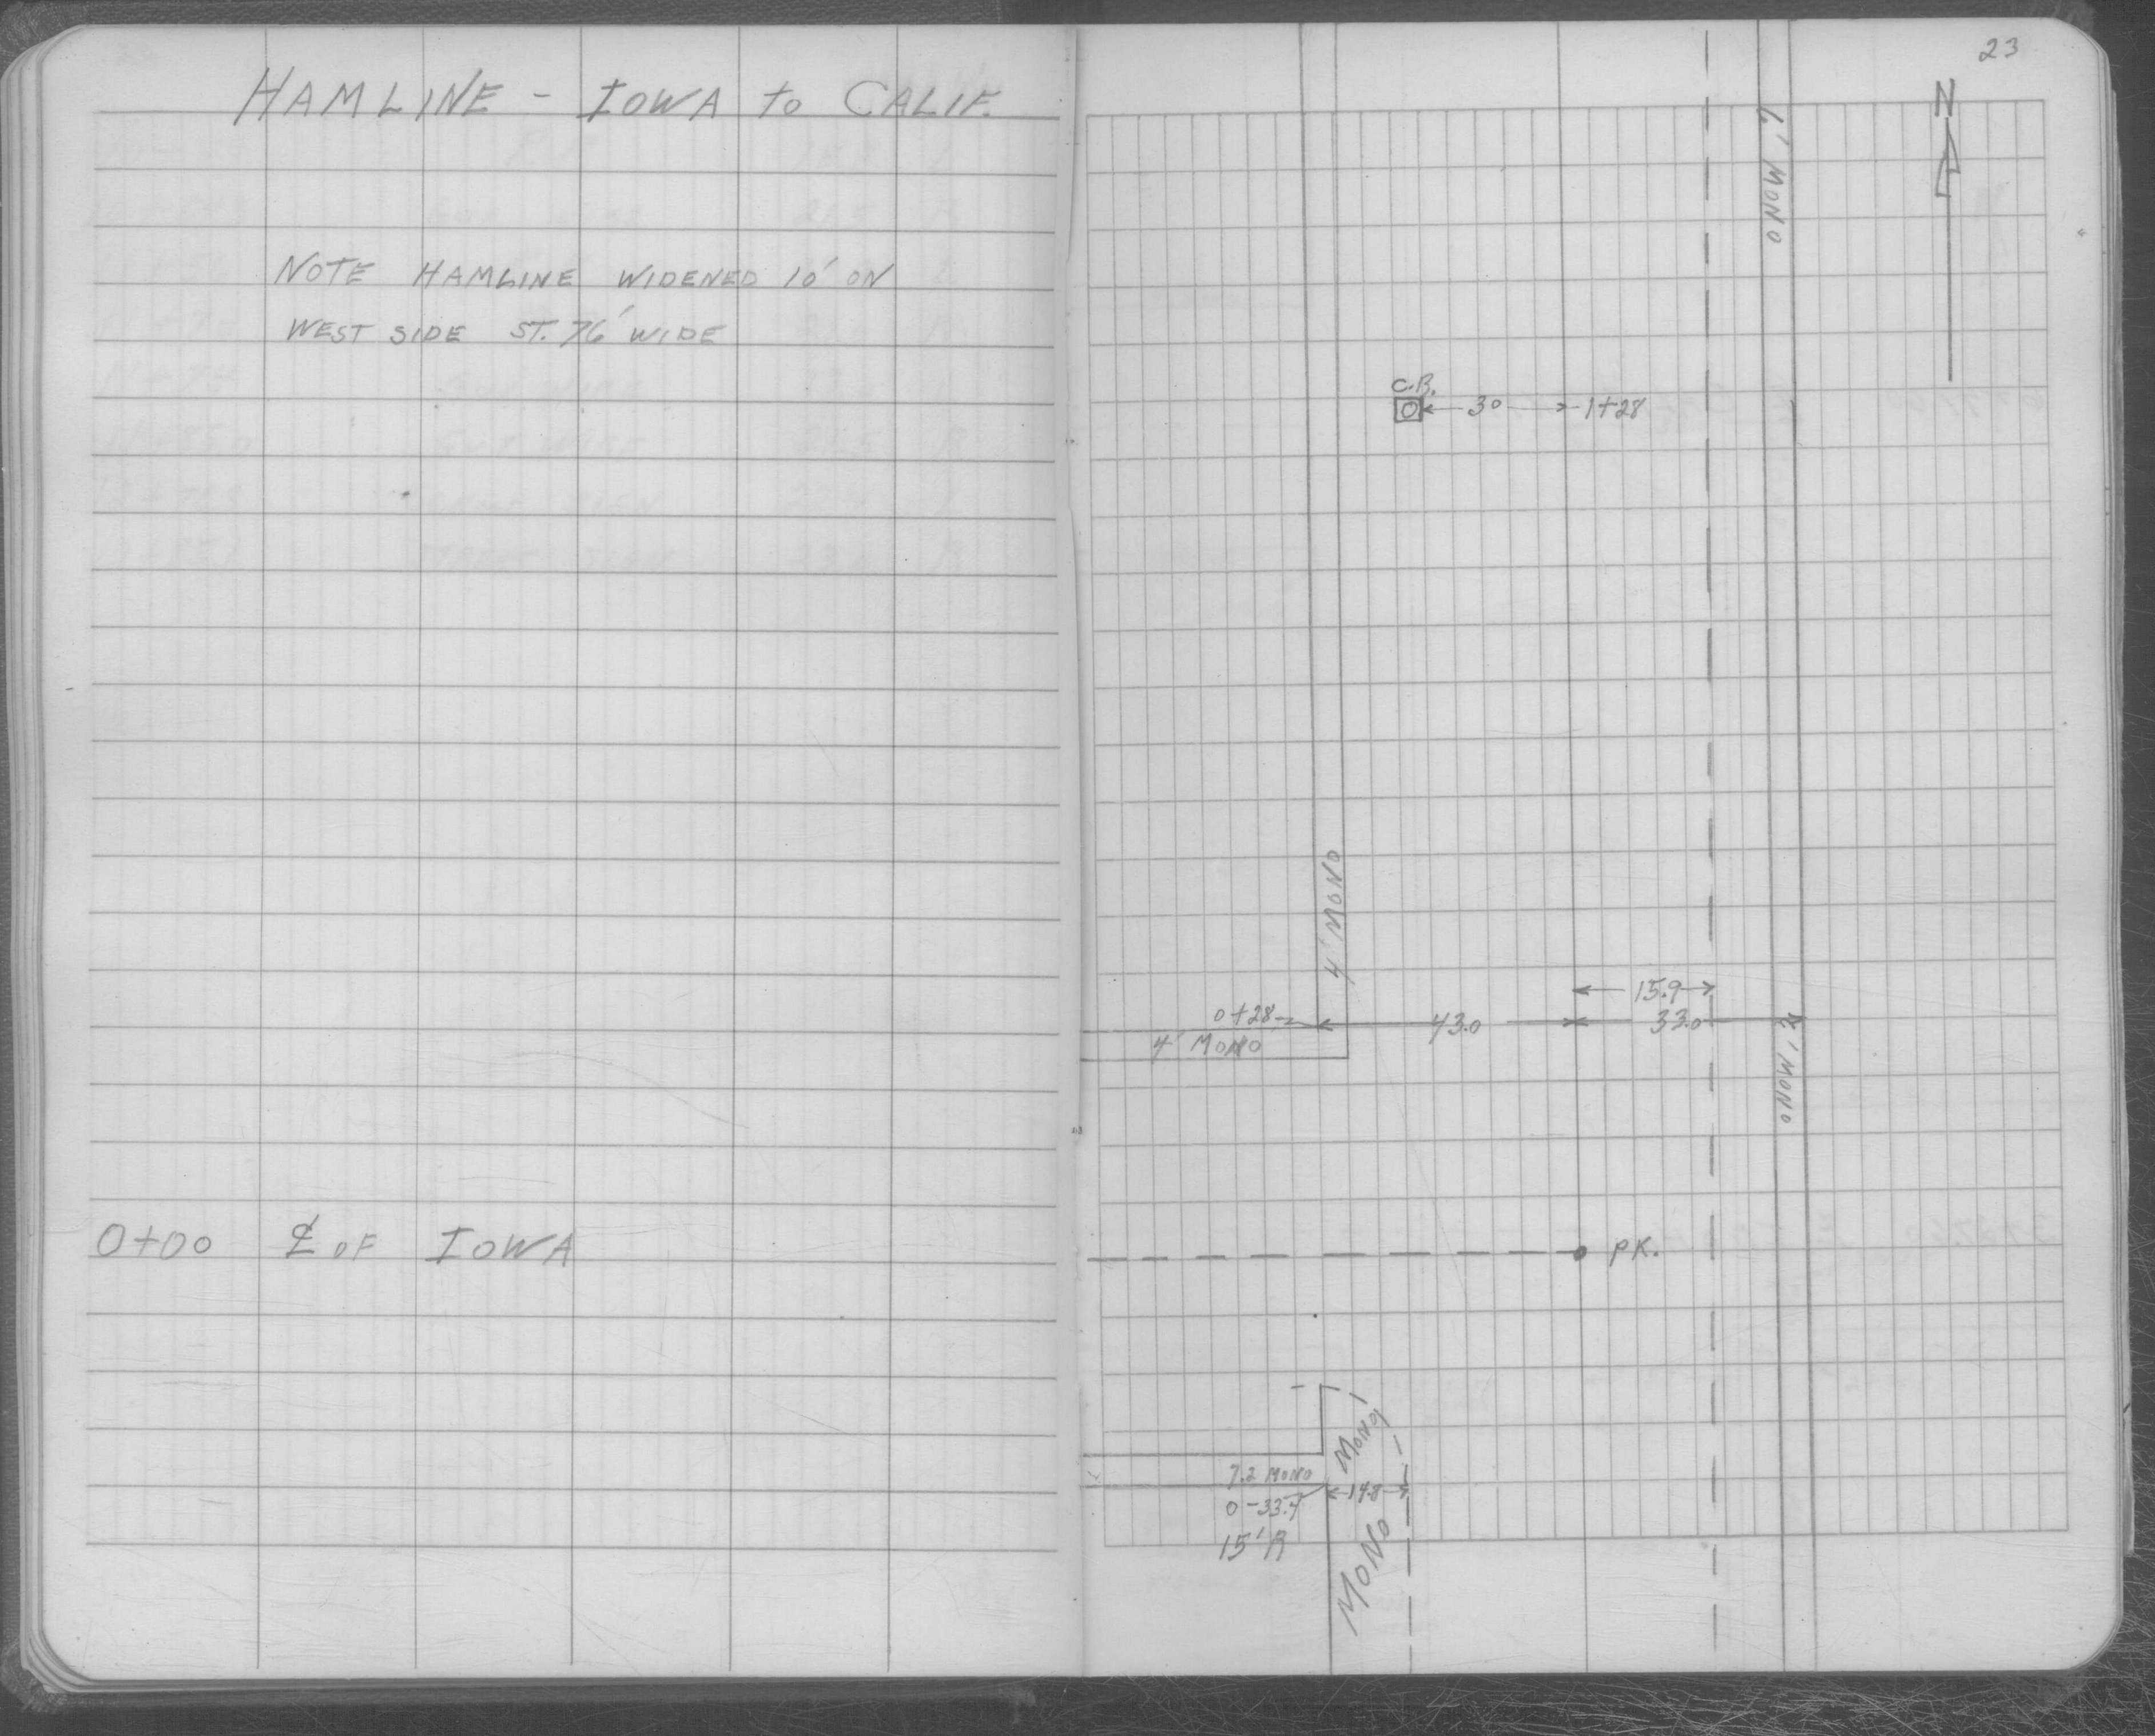 HAMLINE - IOWA to CALIF.
NOTE HAMLINE WIDENED 10' ON
WEST SIDE ST. 76' WIDE
0+00 ℄ OF IOWA
23
N
MONO
C.B.
30 1+28
4' MONO
15.9
0+28 43.0 33.0
4' MONO
MONO
PK.
MONO
7.2 MONO
14.8
0-33.4
15' R
MONO